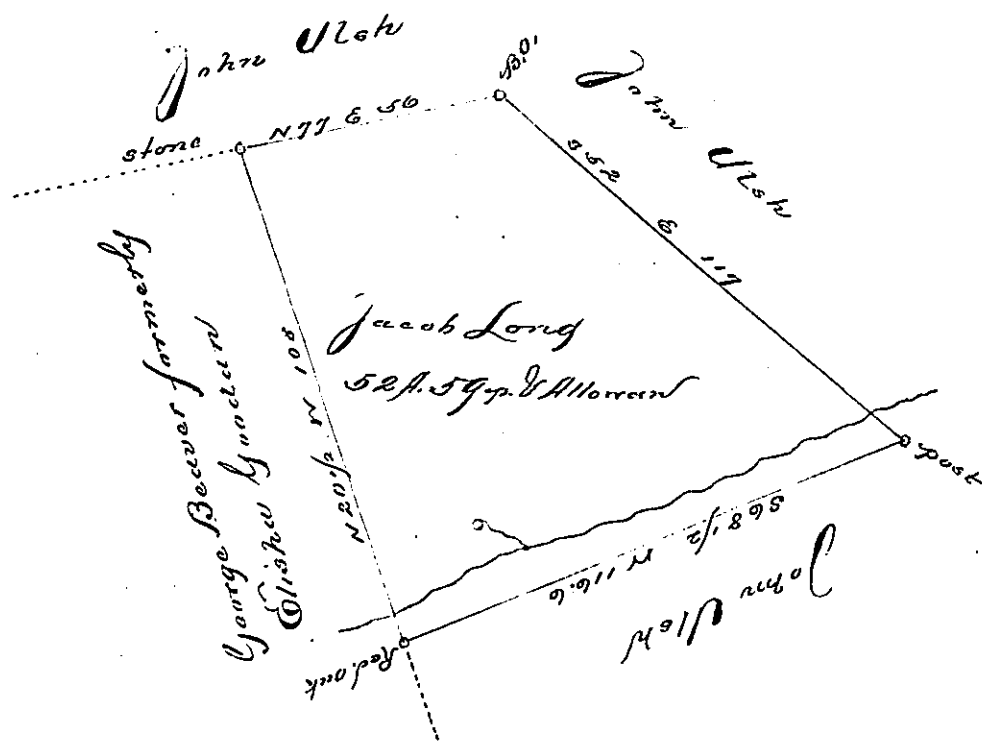 John Ulsh
stone
N 77 E 56
B.O.
John Ulsh
S 52 E 117
George Beaver formerly
Elisha Goodan
N 20 1/2 W 108
Jacob Long
52 A. 59 p. & Allowan
post
S 68 1/2 W 116.6
John Ulsh
Red oak